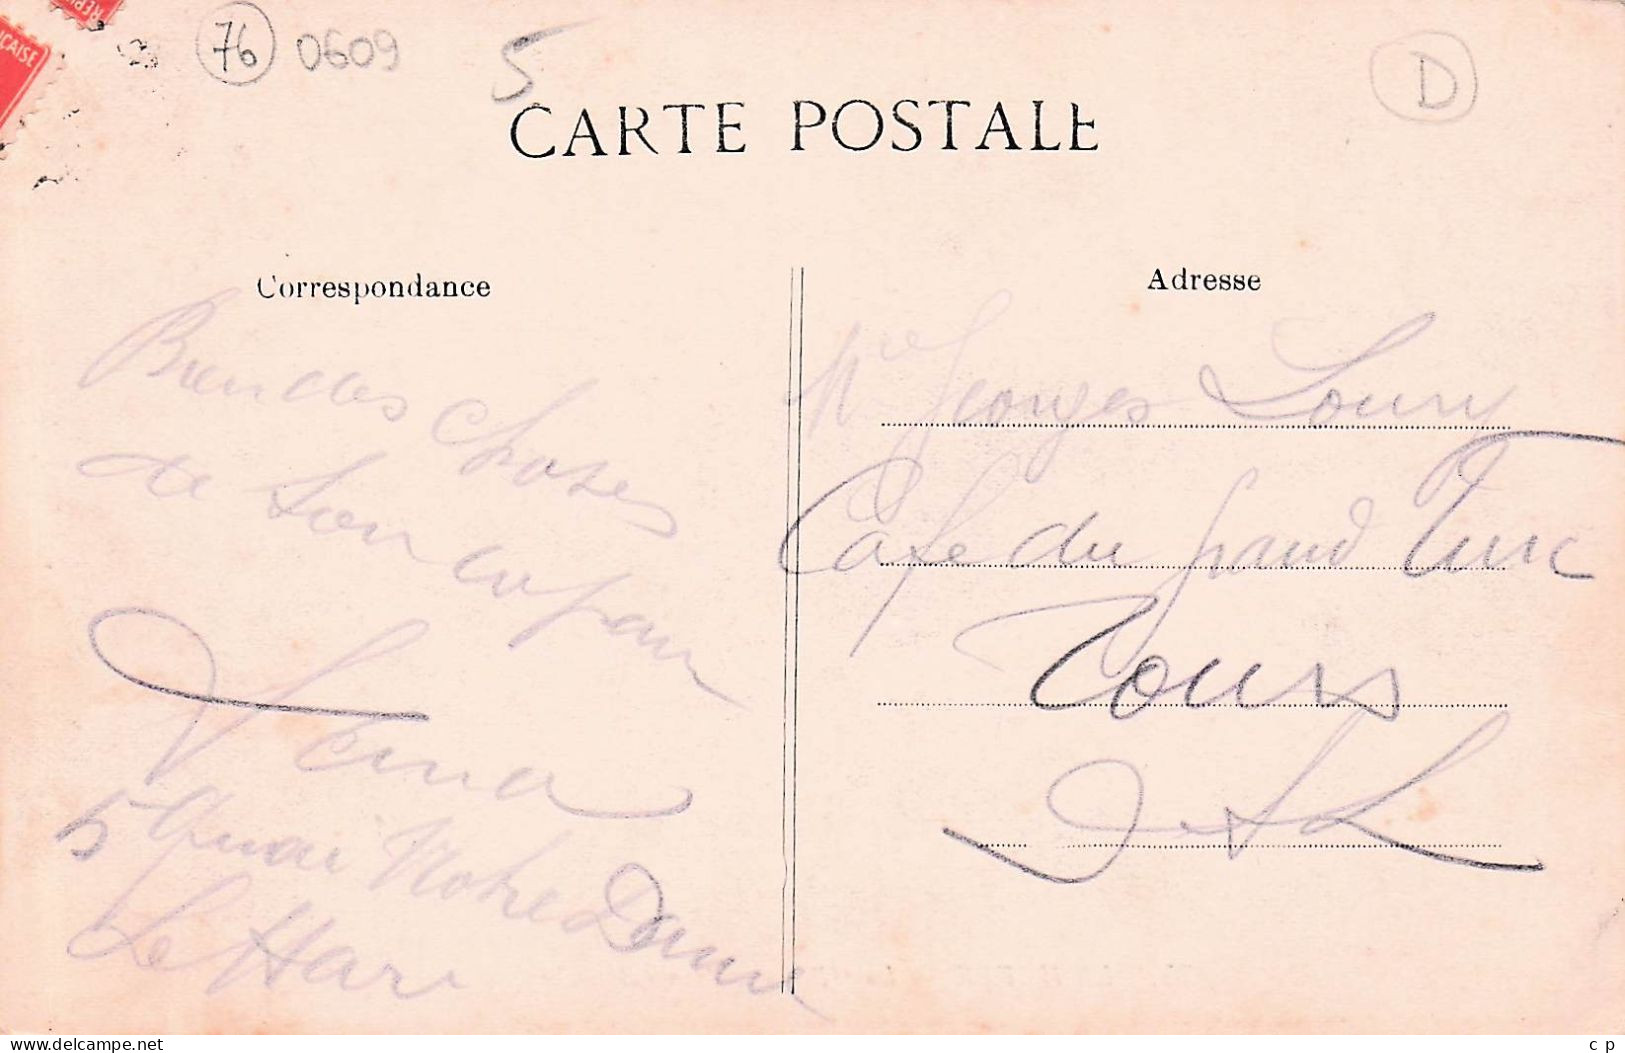 RÉPU
ÇAISE
76
0609
5
D
CARTE POSTALE
Correspondance
Bien des choses
de Son copain
Fena
5 Quai Notre Dame
Le Havr
Adresse
Georges Loury
Café du grand Turc
Tours
I et L
www.delcampe.net
c p